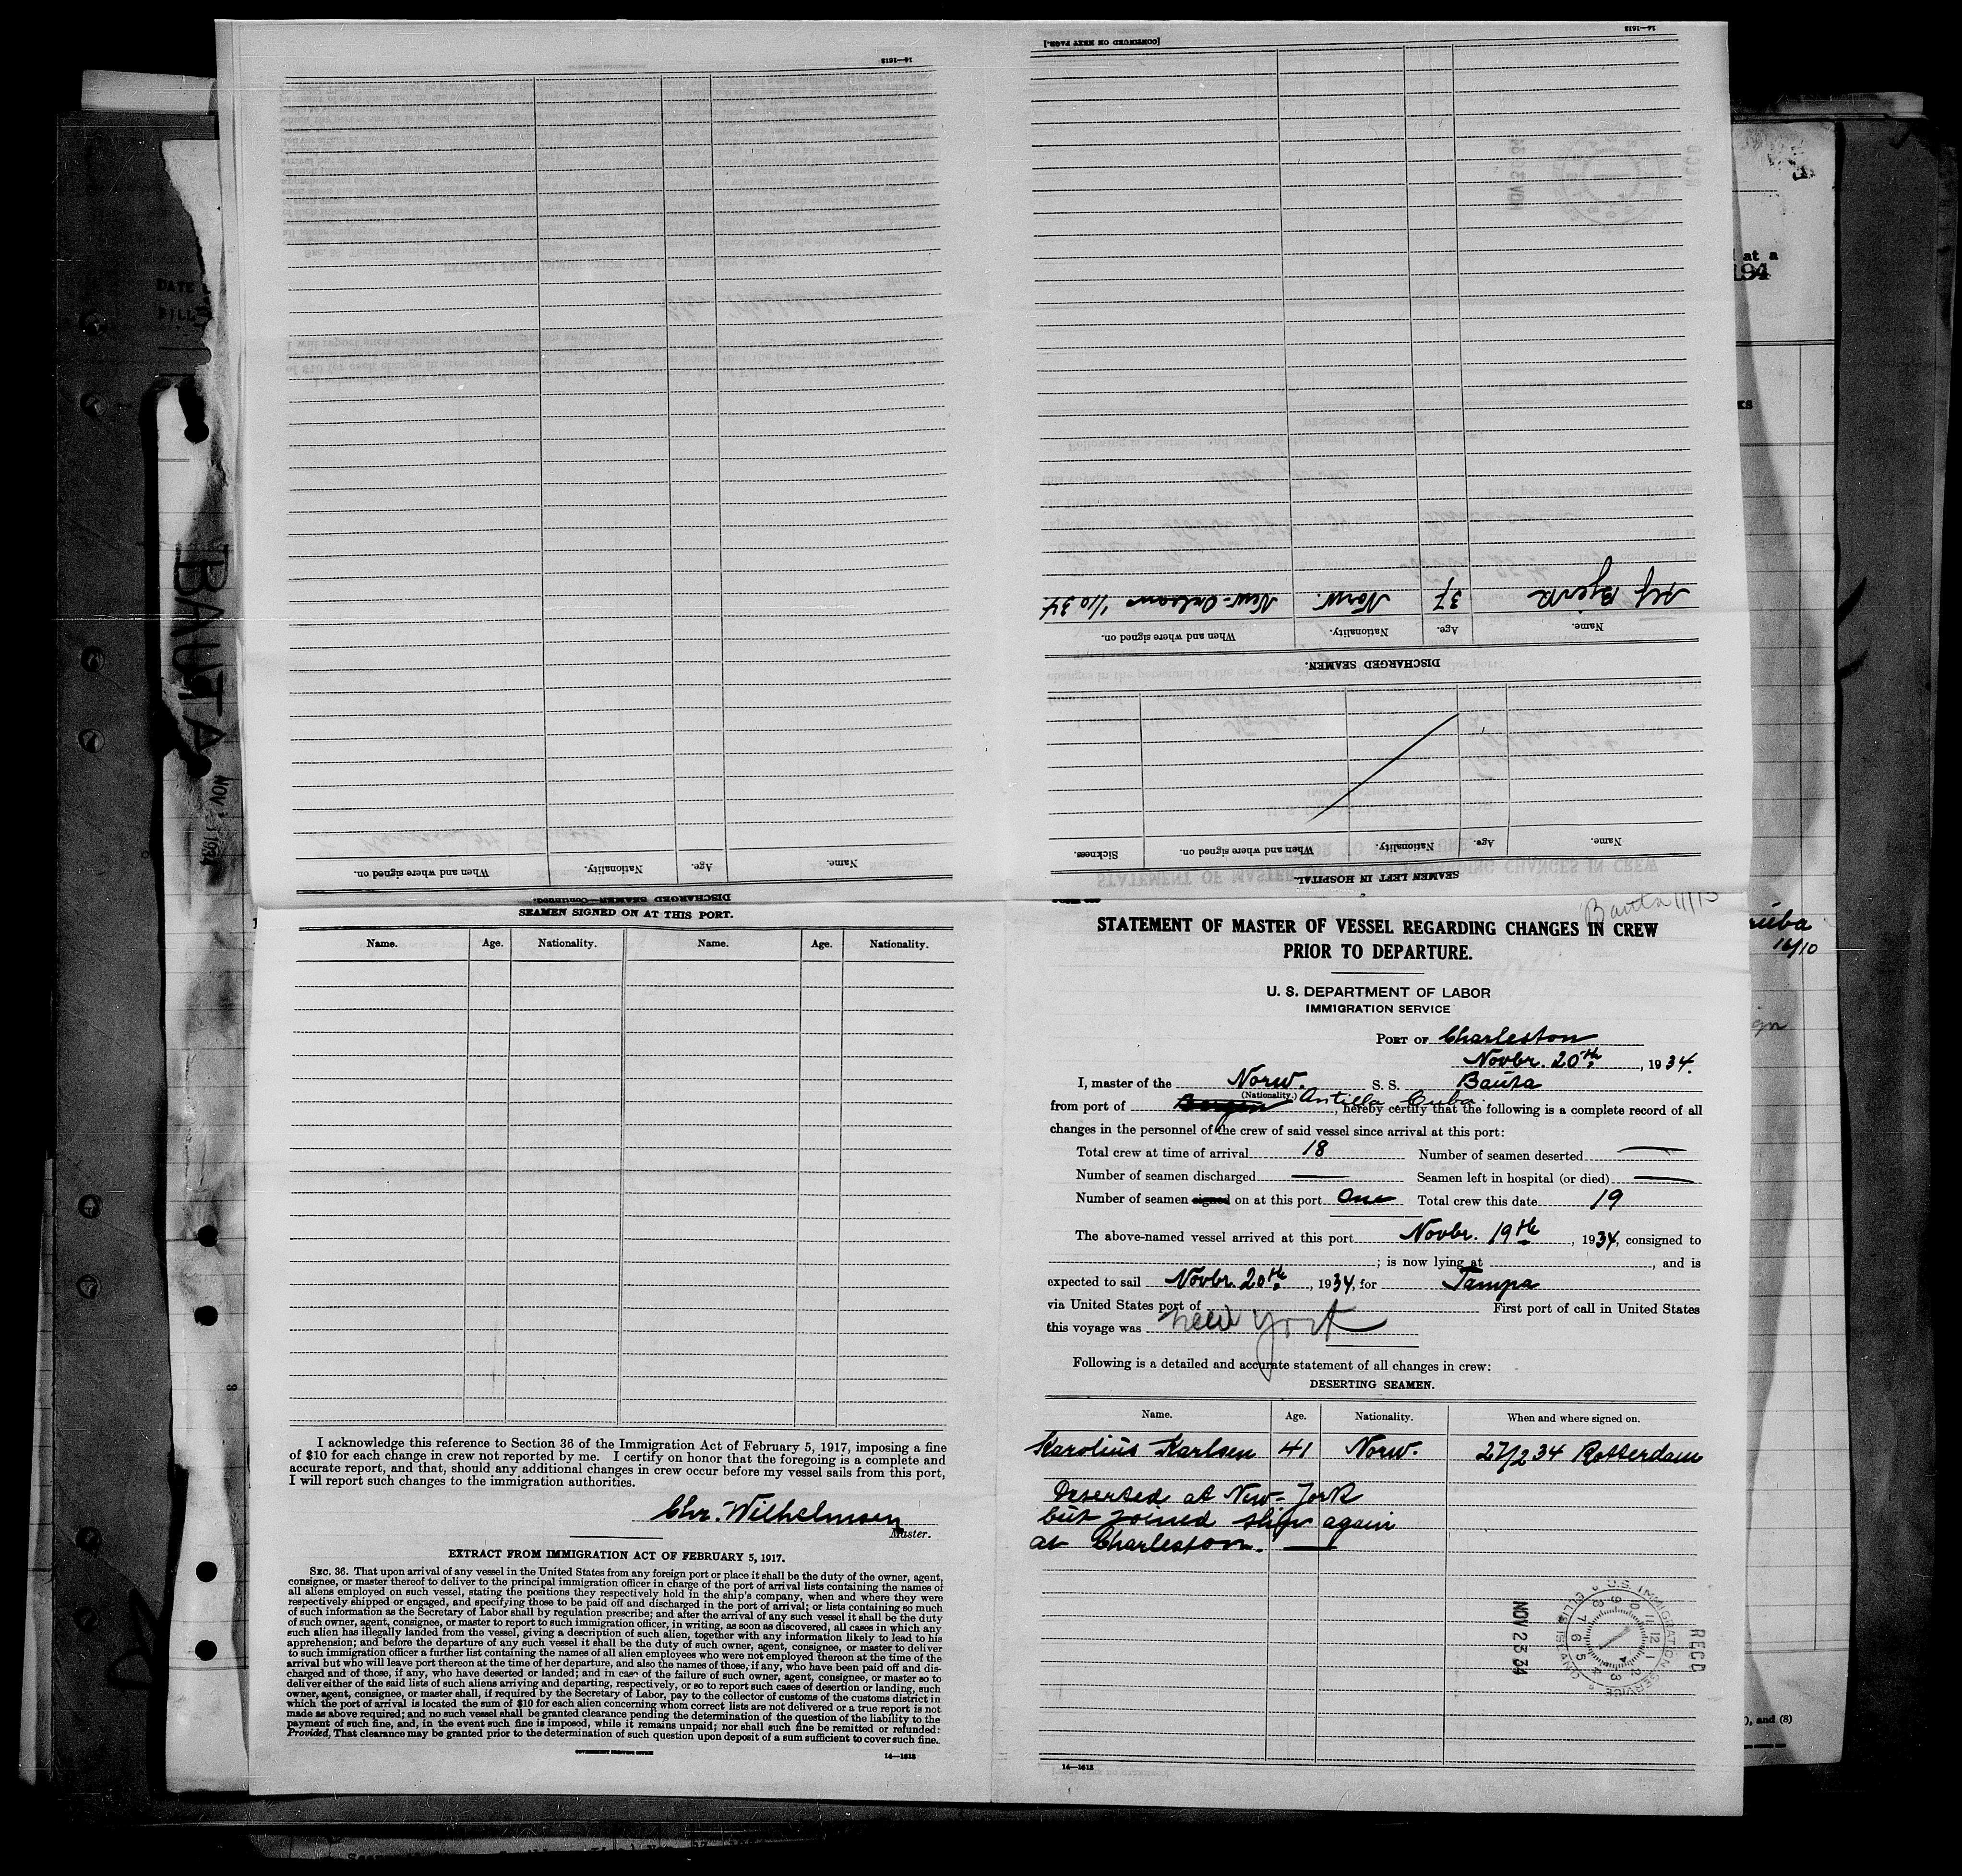 14—1613
Name. Age. Nationality. When and where signed on.
DISCHARGED SEAMEN—Continued.
[CONTINUED ON NEXT PAGE.]
14—1613
DISCHARGED SEAMEN.
Name. Age. Nationality. When and where signed on.
Alf Bjerk 37 Norw. New-Orleans 1/10 34
SEAMEN LEFT IN HOSPITAL.
Name. Age. Nationality. When and where signed on. Sickness.
SEAMEN SIGNED ON AT THIS PORT.
Name. Age. Nationality. Name. Age. Nationality.
I acknowledge this reference to Section 36 of the Immigration Act of February 5, 1917, imposing a fine
of $10 for each change in crew not reported by me. I certify on honor that the foregoing is a complete and
accurate report, and that, should any additional changes in crew occur before my vessel sails from this port,
I will report such changes to the immigration authorities.
Chr. Wilhelmsen
Master.
EXTRACT FROM IMMIGRATION ACT OF FEBRUARY 5, 1917.
SEC. 36. That upon arrival of any vessel in the United States from any foreign port or place it shall be the duty of the owner, agent,
consignee, or master thereof to deliver to the principal immigration officer in charge of the port of arrival lists containing the names of
all aliens employed on such vessel, stating the positions they respectively hold in the ship's company, when and where they were
respectively shipped or engaged, and specifying those to be paid off and discharged in the port of arrival; or lists containing so much
of such information as the Secretary of Labor shall by regulation prescribe; and after the arrival of any such vessel it shall be the duty
of such owner, agent, consignee, or master to report to such immigration officer, in writing, as soon as discovered, all cases in which any
such alien has illegally landed from the vessel, giving a description of such alien, together with any information likely to lead to his
apprehension; and before the departure of any such vessel it shall be the duty of such owner, agent, consignee, or master to deliver
to such immigration officer a further list containing the names of all alien employees who were not employed thereon at the time of the
arrival but who will leave port thereon at the time of her departure, and also the names of those, if any, who have been paid off and dis-
charged and of those, if any, who have deserted or landed; and in case of the failure of such owner, agent, consignee, or master so to
deliver either of the said lists of such aliens arriving and departing, respectively, or so to report such cases of desertion or landing, such
owner, agent, consignee, or master shall, if required by the Secretary of Labor, pay to the collector of customs of the customs district in
which the port of arrival is located the sum of $10 for each alien concerning whom correct lists are not delivered or a true report is not
made as above required; and no such vessel shall be granted clearance pending the determination of the question of the liability to the
payment of such fine, and, in the event such fine is imposed, while it remains unpaid; nor shall such fine be remitted or refunded:
Provided, That clearance may be granted prior to the determination of such question upon deposit of a sum sufficient to cover such fine.
GOVERNMENT PRINTING OFFICE
14—1613
Bauta 11/13
STATEMENT OF MASTER OF VESSEL REGARDING CHANGES IN CREW
PRIOR TO DEPARTURE.
U. S. DEPARTMENT OF LABOR
IMMIGRATION SERVICE
PORT OF Charleston
Novbr. 20th, 1934.
I, master of the Norw. S. S. Bauta
(Nationality.)
from port of Bergen Antilla Cuba, hereby certify that the following is a complete record of all
changes in the personnel of the crew of said vessel since arrival at this port:
Total crew at time of arrival 18 Number of seamen deserted —
Number of seamen discharged — Seamen left in hospital (or died) —
Number of seamen signed on at this port One Total crew this date 19
The above-named vessel arrived at this port Novbr. 19th, 1934, consigned to
; is now lying at , and is
expected to sail Novbr. 20th, 1934, for Tampa
via United States port of First port of call in United States
this voyage was New York
Following is a detailed and accurate statement of all changes in crew:
DESERTING SEAMEN.
Name. Age. Nationality. When and where signed on.
Karolius Karlsen 41 Norw. 27/2 34 Rotterdam
Deserted at New-York
but joined ship again
at Charleston. —
RECD
U.S. IMMIGRATION SERVICE
ELLIS ISLAND
NOV 23 34
14—1613
BAUTA
NOV 1934
DATE
FILL
at a
194
KS
16/10
), and (8)